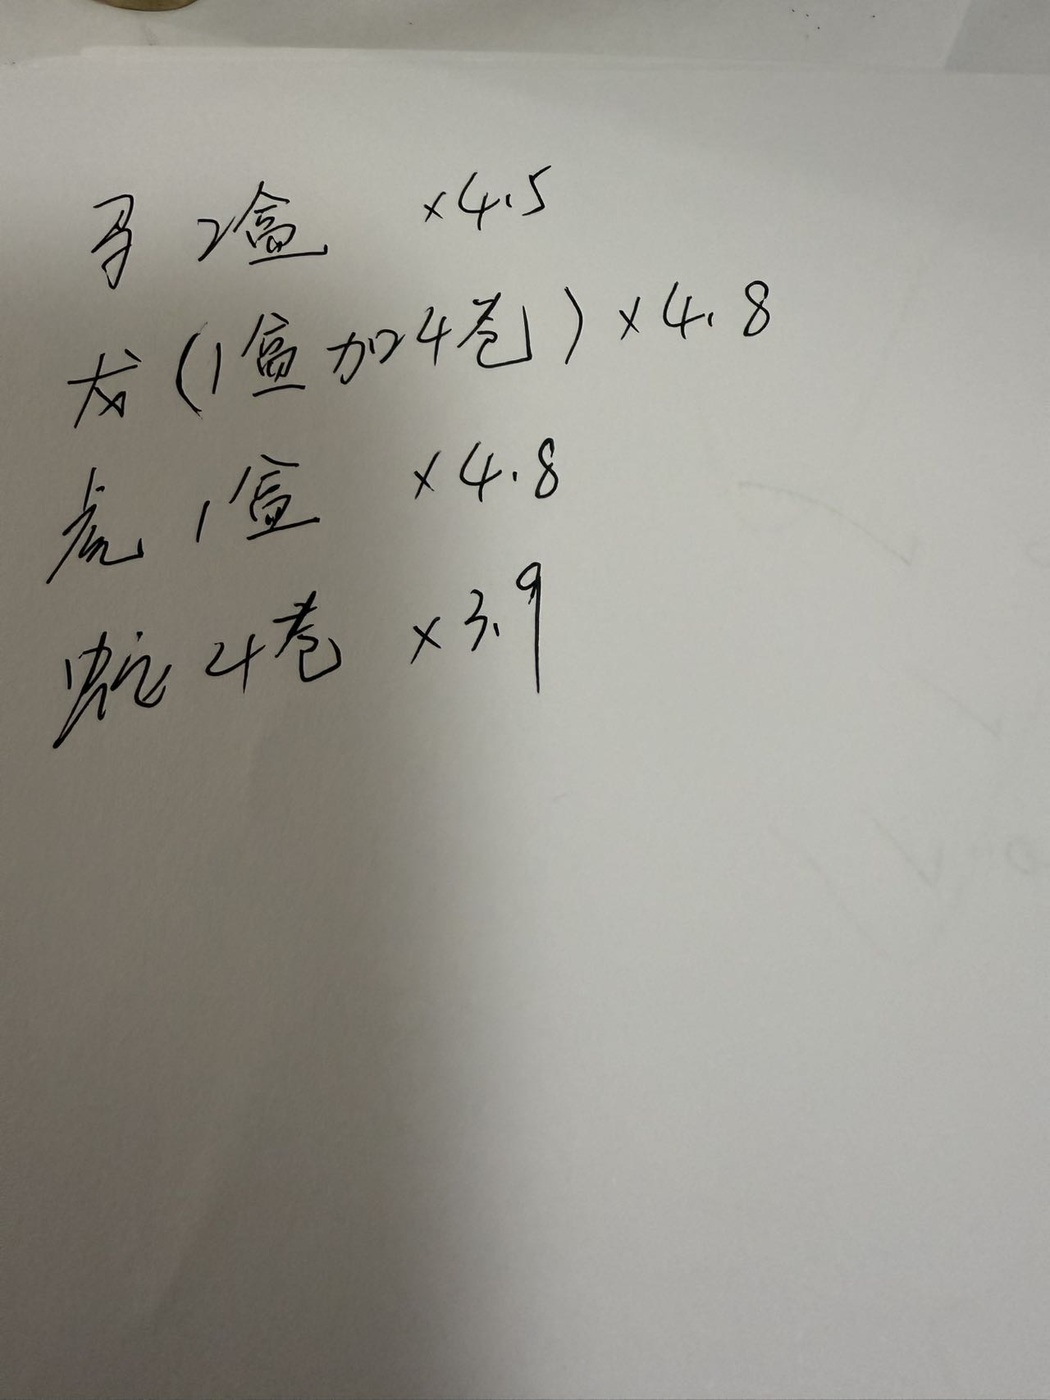 马 2盒 ×4.5
龙(1盒加4卷)×4.8
虎 1盒 ×4.8
蛇 4卷 ×3.9